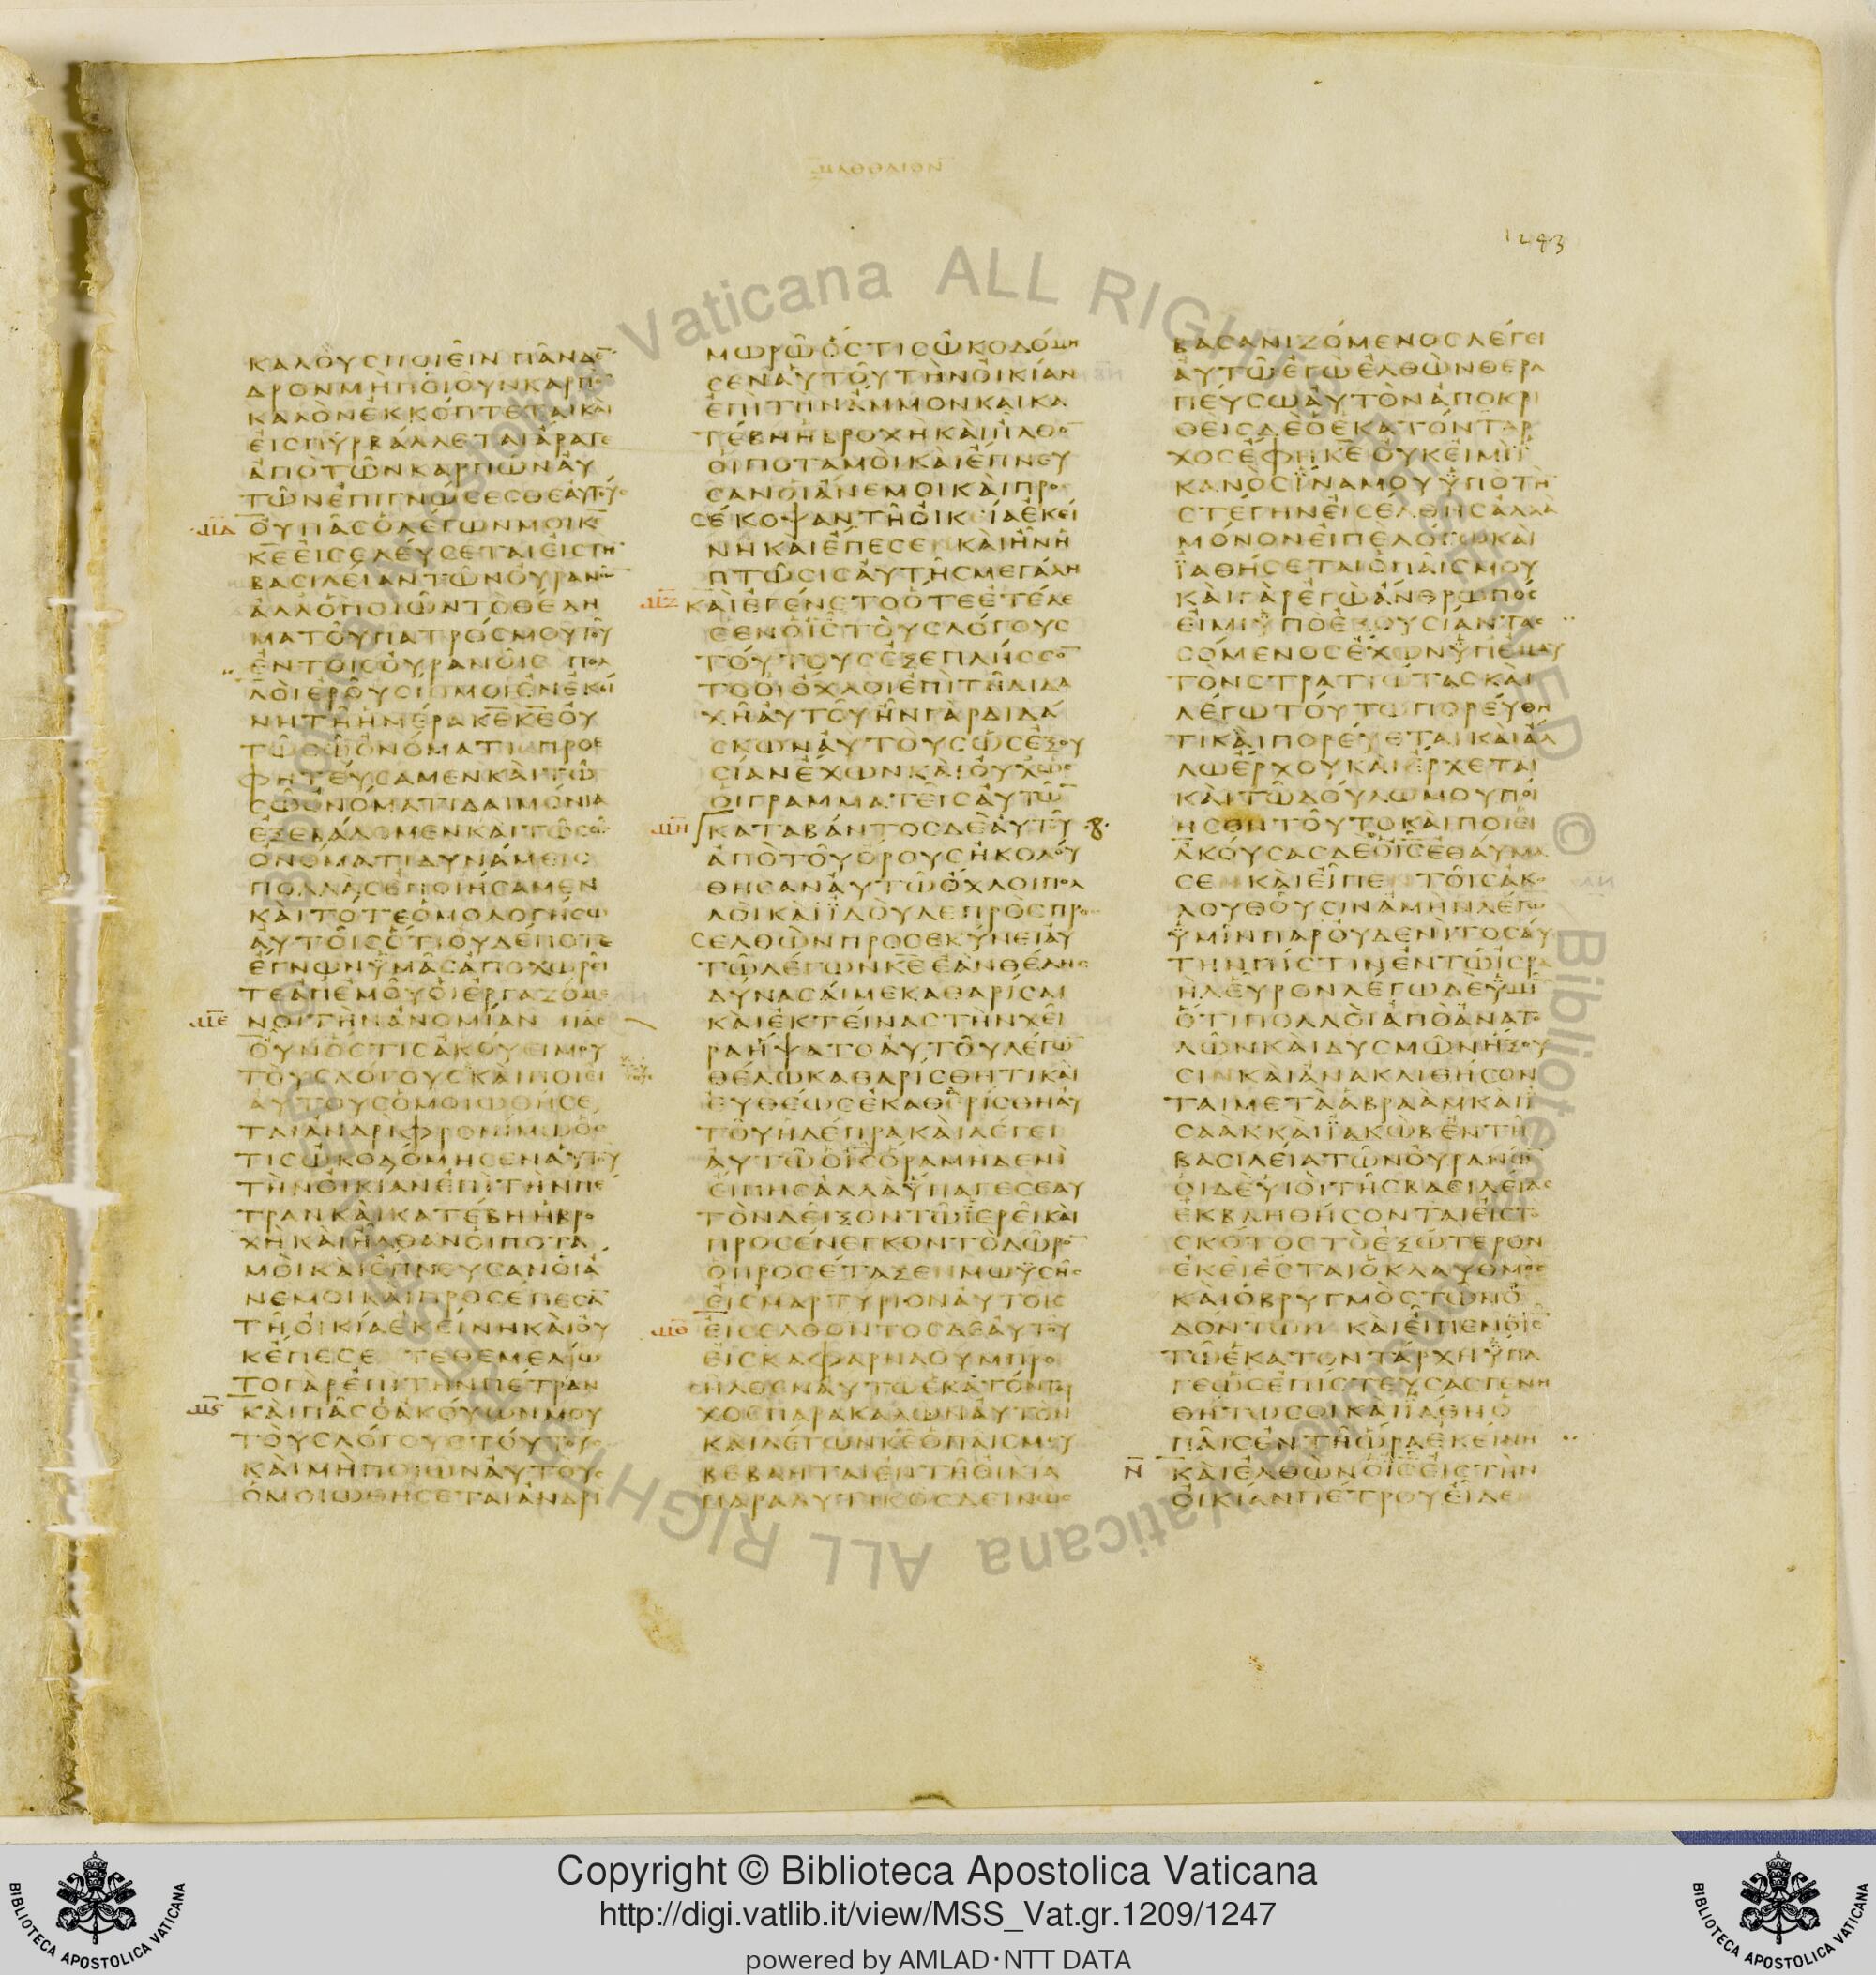 1243
ΚΑΛΟΥΣ ΠΟΙΕΙΝ ΠΑΝ ΔΕ
ΔΡΟΝ ΜΗ ΠΟΙΟΥΝ ΚΑΡΠΟ
ΚΑΛΟΝ ΕΚΚΟΠΤΕΤΑΙ ΚΑΙ
ΕΙΣ ΠΥΡ ΒΑΛΛΕΤΑΙ ΑΡΑΓΕ
ΑΠΟ ΤΩΝ ΚΑΡΠΩΝ ΑΥ
ΤΩΝ ΕΠΙΓΝΩΣΕΣΘΕ ΑΥΤΟΥΣ
ΟΥ ΠΑΣ Ο ΛΕΓΩΝ ΜΟΙ ΚΕ
ΚΕ ΕΙΣΕΛΕΥΣΕΤΑΙ ΕΙΣ ΤΗΝ
ΒΑΣΙΛΕΙΑΝ ΤΩΝ ΟΥΡΑΝΩ
ΑΛΛ Ο ΠΟΙΩΝ ΤΟ ΘΕΛΗ
ΜΑ ΤΟΥ ΠΑΤΡΟΣ ΜΟΥ ΤΟΥ
ΕΝ ΤΟΙΣ ΟΥΡΑΝΟΙΣ ΠΟΛ
ΛΟΙ ΕΡΟΥΣΙ ΜΟΙ ΕΝ ΕΚΕΙ
ΝΗ ΤΗ ΗΜΕΡΑ ΚΕ ΚΕ ΟΥ
ΤΩ ΣΩ ΟΝΟΜΑΤΙ ΕΠΡΟΕ
ΦΗΤΕΥΣΑΜΕΝ ΚΑΙ ΤΩ
ΣΩ ΟΝΟΜΑΤΙ ΔΑΙΜΟΝΙΑ
ΕΞΕΒΑΛΟΜΕΝ ΚΑΙ ΤΩ ΣΩ
ΟΝΟΜΑΤΙ ΔΥΝΑΜΕΙΣ
ΠΟΛΛΑΣ ΕΠΟΙΗΣΑΜΕΝ
ΚΑΙ ΤΟΤΕ ΟΜΟΛΟΓΗΣΩ
ΑΥΤΟΙΣ ΟΤΙ ΟΥΔΕΠΟΤΕ
ΕΓΝΩΝ ΥΜΑΣ ΑΠΟΧΩΡΕΙ
ΤΕ ΑΠ ΕΜΟΥ ΟΙ ΕΡΓΑΖΟΜΕ
ΝΟΙ ΤΗΝ ΑΝΟΜΙΑΝ ΠΑΣ
ΟΥΝ ΟΣΤΙΣ ΑΚΟΥΕΙ ΜΟΥ
ΤΟΥΣ ΛΟΓΟΥΣ ΚΑΙ ΠΟΙΕΙ
ΑΥΤΟΥΣ ΟΜΟΙΩΘΗΣΕ
ΤΑΙ ΑΝΔΡΙ ΦΡΟΝΙΜΩ ΟΣ
ΤΙΣ ΩΚΟΔΟΜΗΣΕΝ ΑΥΤΟΥ
ΤΗΝ ΟΙΚΙΑΝ ΕΠΙ ΤΗΝ ΠΕ
ΤΡΑΝ ΚΑΙ ΚΑΤΕΒΗ Η ΒΡΟ
ΧΗ ΚΑΙ ΗΛΘΑΝ ΟΙ ΠΟΤΑ
ΜΟΙ ΚΑΙ ΕΠΝΕΥΣΑΝ ΟΙ Α
ΝΕΜΟΙ ΚΑΙ ΠΡΟΣΕΠΕΣΑ
ΤΗ ΟΙΚΙΑ ΕΚΕΙΝΗ ΚΑΙ ΟΥ
Κ ΕΠΕΣΕ ΤΕΘΕΜΕΛΙΩ
ΤΟ ΓΑΡ ΕΠΙ ΤΗΝ ΠΕΤΡΑΝ
ΚΑΙ ΠΑΣ Ο ΑΚΟΥΩΝ ΜΟΥ
ΤΟΥΣ ΛΟΓΟΥΣ ΤΟΥΤΟΥΣ
ΚΑΙ ΜΗ ΠΟΙΩΝ ΑΥΤΟΥΣ
ΟΜΟΙΩΘΗΣΕΤΑΙ ΑΝΔΡΙ
ΜΩΡΩ ΟΣΤΙΣ ΩΚΟΔΟΜΗ
ΣΕΝ ΑΥΤΟΥ ΤΗΝ ΟΙΚΙΑΝ
ΕΠΙ ΤΗΝ ΑΜΜΟΝ ΚΑΙ ΚΑ
ΤΕΒΗ Η ΒΡΟΧΗ ΚΑΙ ΗΛΘΟ
ΟΙ ΠΟΤΑΜΟΙ ΚΑΙ ΕΠΝΕΥ
ΣΑΝ ΟΙ ΑΝΕΜΟΙ ΚΑΙ ΠΡΟ
ΣΕΚΟΨΑΝ ΤΗ ΟΙΚΙΑ ΕΚΕΙ
ΝΗ ΚΑΙ ΕΠΕΣΕ ΚΑΙ ΗΝ Η
ΠΤΩΣΙΣ ΑΥΤΗΣ ΜΕΓΑΛΗ
ΚΑΙ ΕΓΕΝΕΤΟ ΟΤΕ ΕΤΕΛΕ
ΣΕΝ Ο ΙΣ ΤΟΥΣ ΛΟΓΟΥΣ
ΤΟΥΤΟΥΣ ΕΞΕΠΛΗΣΣΟ
ΤΟ ΟΙ ΟΧΛΟΙ ΕΠΙ ΤΗ ΔΙΔΑ
ΧΗ ΑΥΤΟΥ ΗΝ ΓΑΡ ΔΙΔΑ
ΣΚΩΝ ΑΥΤΟΥΣ ΩΣ ΕΞΟΥ
ΣΙΑΝ ΕΧΩΝ ΚΑΙ ΟΥΧ ΩΣ
ΟΙ ΓΡΑΜΜΑΤΕΙΣ ΑΥΤΩ
ΚΑΤΑΒΑΝΤΟΣ ΔΕ ΑΥΤΟΥ
ΑΠΟ ΤΟΥ ΟΡΟΥΣ ΗΚΟΛΟΥ
ΘΗΣΑΝ ΑΥΤΩ ΟΧΛΟΙ ΠΟΛ
ΛΟΙ ΚΑΙ ΙΔΟΥ ΛΕΠΡΟΣ ΠΡΟ
ΣΕΛΘΩΝ ΠΡΟΣΕΚΥΝΕΙ ΑΥ
ΤΩ ΛΕΓΩΝ ΚΕ ΕΑΝ ΘΕΛΗΣ
ΔΥΝΑΣΑΙ ΜΕ ΚΑΘΑΡΙΣΑΙ
ΚΑΙ ΕΚΤΕΙΝΑΣ ΤΗΝ ΧΕΙ
ΡΑ ΗΨΑΤΟ ΑΥΤΟΥ ΛΕΓΩ
ΘΕΛΩ ΚΑΘΑΡΙΣΘΗΤΙ ΚΑΙ
ΕΥΘΕΩΣ ΕΚΑΘΕΡΙΣΘΗ ΑΥ
ΤΟΥ Η ΛΕΠΡΑ ΚΑΙ ΛΕΓΕΙ
ΑΥΤΩ Ο ΙΣ ΟΡΑ ΜΗΔΕΝΙ
ΕΙΠΗΣ ΑΛΛΑ ΥΠΑΓΕ ΣΕΑΥ
ΤΟΝ ΔΕΙΞΟΝ ΤΩ ΙΕΡΕΙ ΚΑΙ
ΠΡΟΣΕΝΕΓΚΟΝ ΤΟ ΔΩΡΟ
Ο ΠΡΟΣΕΤΑΞΕΝ ΜΩΥΣΗΣ
ΕΙΣ ΜΑΡΤΥΡΙΟΝ ΑΥΤΟΙΣ
ΕΙΣΕΛΘΟΝΤΟΣ ΔΕ ΑΥΤΟΥ
ΕΙΣ ΚΑΦΑΡΝΑΟΥΜ ΠΡΟ
ΣΗΛΘΕΝ ΑΥΤΩ ΕΚΑΤΟΝΤΑΡ
ΧΟΣ ΠΑΡΑΚΑΛΩΝ ΑΥΤΟΝ
ΚΑΙ ΛΕΓΩΝ ΚΕ Ο ΠΑΙΣ ΜΟΥ
ΒΕΒΛΗΤΑΙ ΕΝ ΤΗ ΟΙΚΙΑ
ΠΑΡΑΛΥΤΙΚΟΣ ΔΕΙΝΩΣ
ΒΑΣΑΝΙΖΟΜΕΝΟΣ ΛΕΓΕΙ
ΑΥΤΩ ΕΓΩ ΕΛΘΩΝ ΘΕΡΑ
ΠΕΥΣΩ ΑΥΤΟΝ ΑΠΟΚΡΙ
ΘΕΙΣ ΔΕ Ο ΕΚΑΤΟΝΤΑΡ
ΧΟΣ ΕΦΗ ΚΕ ΟΥΚ ΕΙΜΙ Ι
ΚΑΝΟΣ ΙΝΑ ΜΟΥ ΥΠΟ ΤΗ
ΣΤΕΓΗΝ ΕΙΣΕΛΘΗΣ ΑΛΛΑ
ΜΟΝΟΝ ΕΙΠΕ ΛΟΓΩ ΚΑΙ
ΙΑΘΗΣΕΤΑΙ Ο ΠΑΙΣ ΜΟΥ
ΚΑΙ ΓΑΡ ΕΓΩ ΑΝΘΡΩΠΟΣ
ΕΙΜΙ ΥΠΟ ΕΞΟΥΣΙΑΝ ΤΑΣ
ΣΟΜΕΝΟΣ ΕΧΩΝ ΥΠ ΕΜΑΥ
ΤΟΝ ΣΤΡΑΤΙΩΤΑΣ ΚΑΙ
ΛΕΓΩ ΤΟΥΤΩ ΠΟΡΕΥΘΗ
ΤΙ ΚΑΙ ΠΟΡΕΥΕΤΑΙ ΚΑΙ ΑΛ
ΛΩ ΕΡΧΟΥ ΚΑΙ ΕΡΧΕΤΑΙ
ΚΑΙ ΤΩ ΔΟΥΛΩ ΜΟΥ ΠΟΙ
ΗΣΟΝ ΤΟΥΤΟ ΚΑΙ ΠΟΙΕΙ
ΑΚΟΥΣΑΣ ΔΕ Ο ΙΣ ΕΘΑΥΜΑ
ΣΕ ΚΑΙ ΕΙΠΕ ΤΟΙΣ ΑΚΟ
ΛΟΥΘΟΥΣΙΝ ΑΜΗΝ ΛΕΓΩ
ΥΜΙΝ ΠΑΡ ΟΥΔΕΝΙ ΤΟΣΑΥ
ΤΗΝ ΠΙΣΤΙΝ ΕΝ ΤΩ ΙΣΡΑ
ΗΛ ΕΥΡΟΝ ΛΕΓΩ ΔΕ ΥΜΙ
ΟΤΙ ΠΟΛΛΟΙ ΑΠΟ ΑΝΑΤΟ
ΛΩΝ ΚΑΙ ΔΥΣΜΩΝ ΗΞΟΥ
ΣΙΝ ΚΑΙ ΑΝΑΚΛΙΘΗΣΟΝ
ΤΑΙ ΜΕΤΑ ΑΒΡΑΑΜ ΚΑΙ Ι
ΣΑΑΚ ΚΑΙ ΙΑΚΩΒ ΕΝ ΤΗ
ΒΑΣΙΛΕΙΑ ΤΩΝ ΟΥΡΑΝΩΝ
ΟΙ ΔΕ ΥΙΟΙ ΤΗΣ ΒΑΣΙΛΕΙΑΣ
ΕΚΒΛΗΘΗΣΟΝΤΑΙ ΕΙΣ ΤΟ
ΣΚΟΤΟΣ ΤΟ ΕΞΩΤΕΡΟΝ
ΕΚΕΙ ΕΣΤΑΙ Ο ΚΛΑΥΘΜΟΣ
ΚΑΙ Ο ΒΡΥΓΜΟΣ ΤΩΝ Ο
ΔΟΝΤΩΝ ΚΑΙ ΕΙΠΕΝ Ο ΙΣ
ΤΩ ΕΚΑΤΟΝΤΑΡΧΗ ΥΠΑ
ΓΕ ΩΣ ΕΠΙΣΤΕΥΣΑΣ ΓΕΝΗ
ΘΗΤΩ ΣΟΙ ΚΑΙ ΙΑΘΗ Ο
ΠΑΙΣ ΕΝ ΤΗ ΩΡΑ ΕΚΕΙΝΗ
Ν ΚΑΙ ΕΛΘΩΝ Ο ΙΣ ΕΙΣ ΤΗΝ
ΟΙΚΙΑΝ ΠΕΤΡΟΥ ΕΙΔΕ
Vaticana ALL RIGHTS
© Biblioteca
Copyright © Biblioteca Apostolica Vaticana
http://digi.vatlib.it/view/MSS_Vat.gr.1209/1247
powered by AMLAD·NTT DATA
BIBLIOTECA APOSTOLICA VATICANA
BIBLIOTECA APOSTOLICA VATICANA